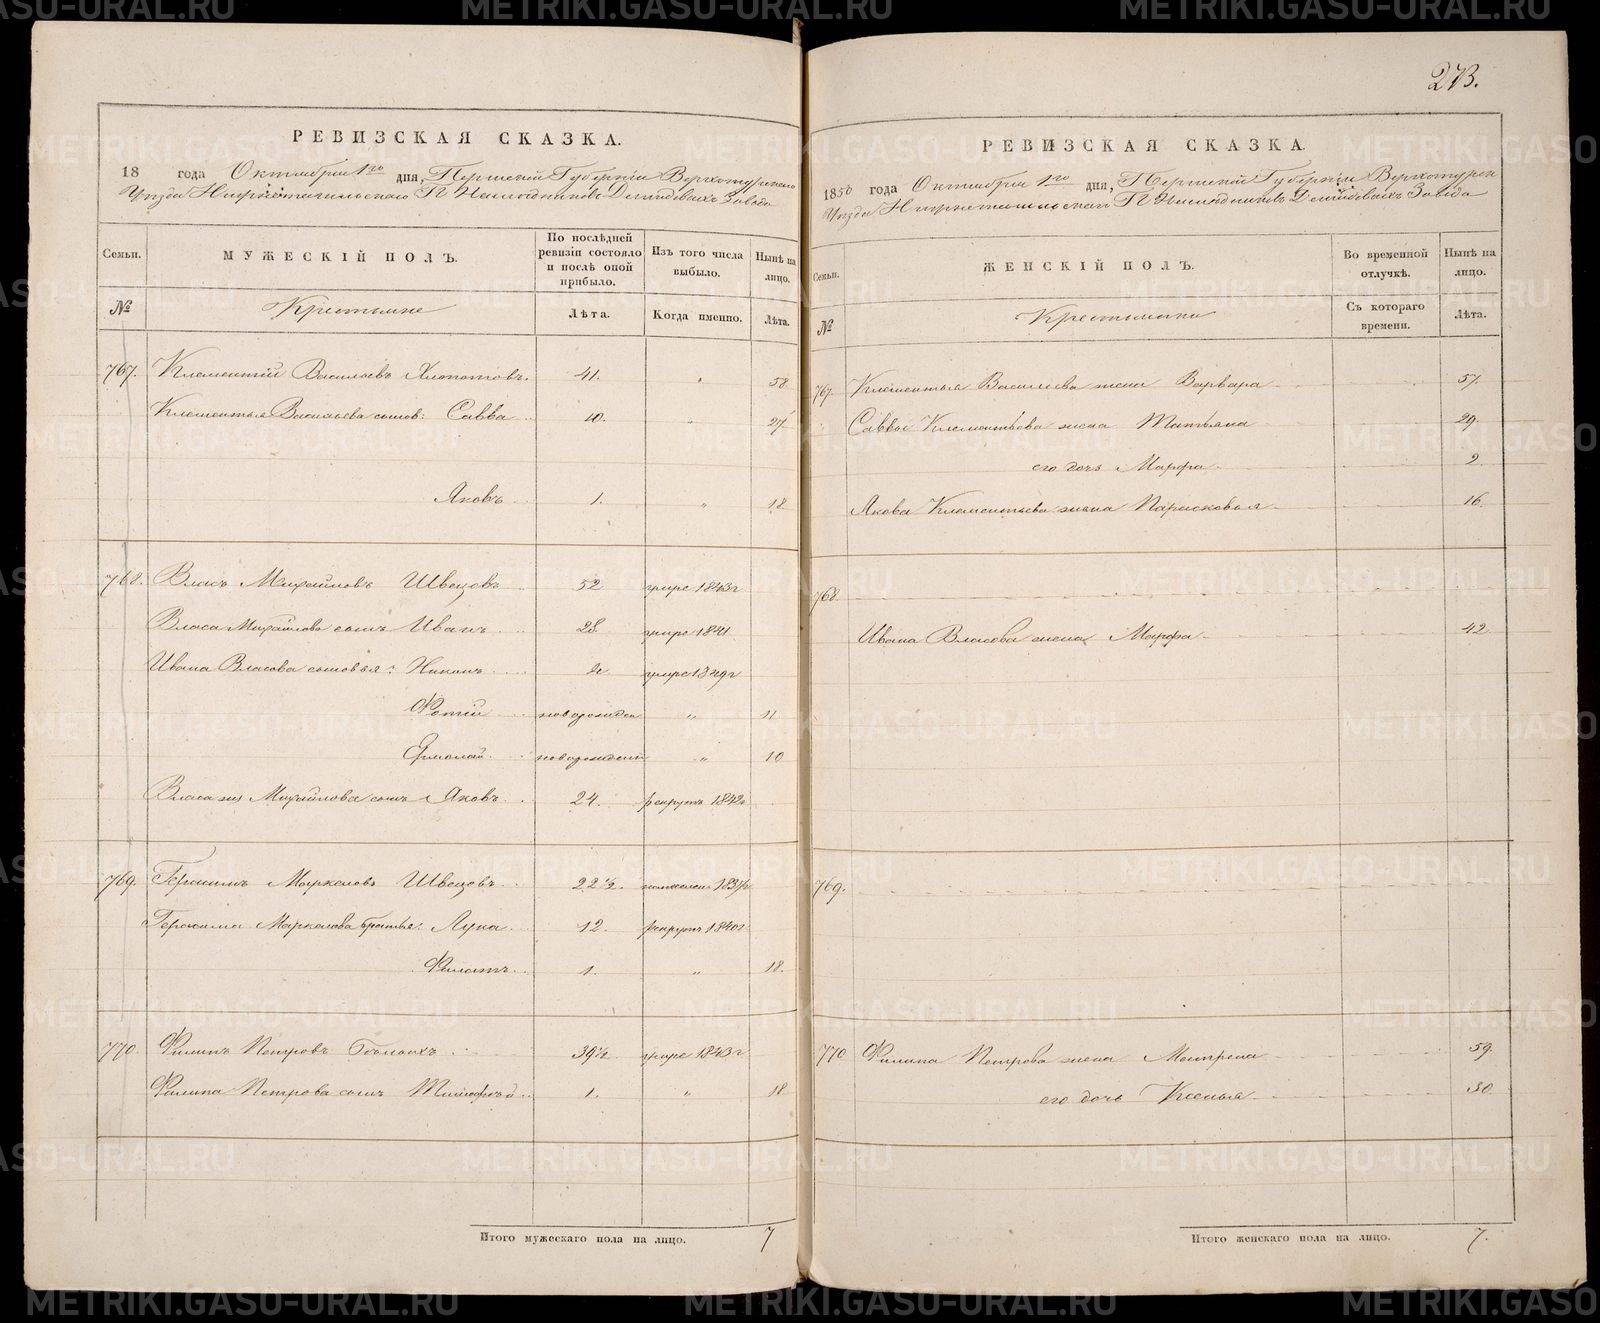 273.
РЕВИЗСКАЯ СКАЗКА.
18 года Октября 1го дня, Пермской Губернии Верхотурского
Уезда Нижнетагильского Г. Наследников Демидовых Завода
Семьи. МУЖЕСКІЙ ПОЛЪ. По послѣдней ревизіи состояло и послѣ оной прибыло. Изъ того числа выбыло. Нынѣ на лицо.
№ Крестьяне Лѣта. Когда именно. Лѣта.
767. Климентій Васильевъ 41. " 58
Климентья Васильева сынов: Савва 10. " 27
Яковъ 1. " 18
768. Власъ Михайловъ Швецовъ 52 умре 1843г
Власа Михайлова сынъ Иванъ 28. умре 1841
Ивана Власова сыновья: Никонъ умре 1849г
Фотій новорожден " 11
Ермолай новорожден " 10
Власа же Михайлова сынъ Яковъ 24. рекрутъ 1842г
769. Герасимъ Маркеловъ Швецовъ 22½.
Герасима Маркелова братья: Лука 12. рекрутъ 1840г
Филатъ 1. " 18.
770. Филипъ Петровъ 39½. умре 1843г
Филипа Петрова сынъ Тимофей 1. " 18
Итого мужескаго пола на лицо. 7
РЕВИЗСКАЯ СКАЗКА.
1850 года Октября 1го дня, Пермской Губерніи Верхотурск
Уезда Нижнетагильскаго Г. Наследниковъ Демидовыхъ Завода
Семьи. ЖЕНСКІЙ ПОЛЪ. Во временной отлучкѣ. Нынѣ на лицо.
№ Крестьянки Съ котораго времени. Лѣта.
767. Климентья Васильева жена Варвара 57.
Саввы Климентьева жена Татьяна 29.
его дочь Марфа 2
Якова Климентьева жена Парасковья 16.
768.
Ивана Власова жена Марфа 42
769.
770 Филипа Петрова жена Матрена 59.
его дочь Ксенья 30
Итого женскаго пола на лицо. 7.
METRIKI.GASO-URAL.RU